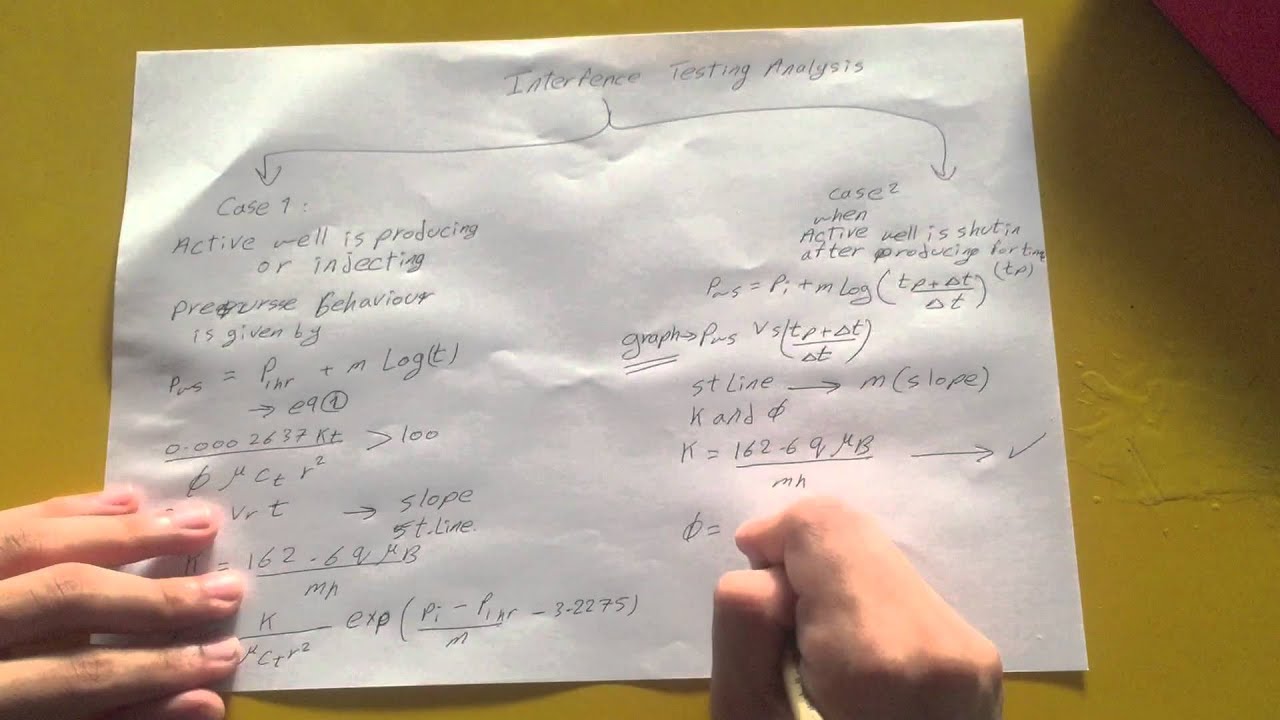 Interfence Testing Analysis
Case 1 :
Active well is producing
or injecting
Preursse Behaviour
is given by
Pws = P1hr + m Log(t)
→ eq ①
0.0002637 Kt / ϕ μ Ct r² > 100
vr t → slope
st.Line.
K = 162.6 q μB / mh
K / μ Ct r² exp ( Pi - P1hr / m - 3.2275)
case 2
when
Active well is shutin
after producing for time
(tp)
Pws = Pi + m Log ( tp + Δt / Δt )
graph → Pws Vs ( tp + Δt / Δt )
st Line → m (slope)
K and ϕ
K = 162.6 q μB / mh → ✓
ϕ =